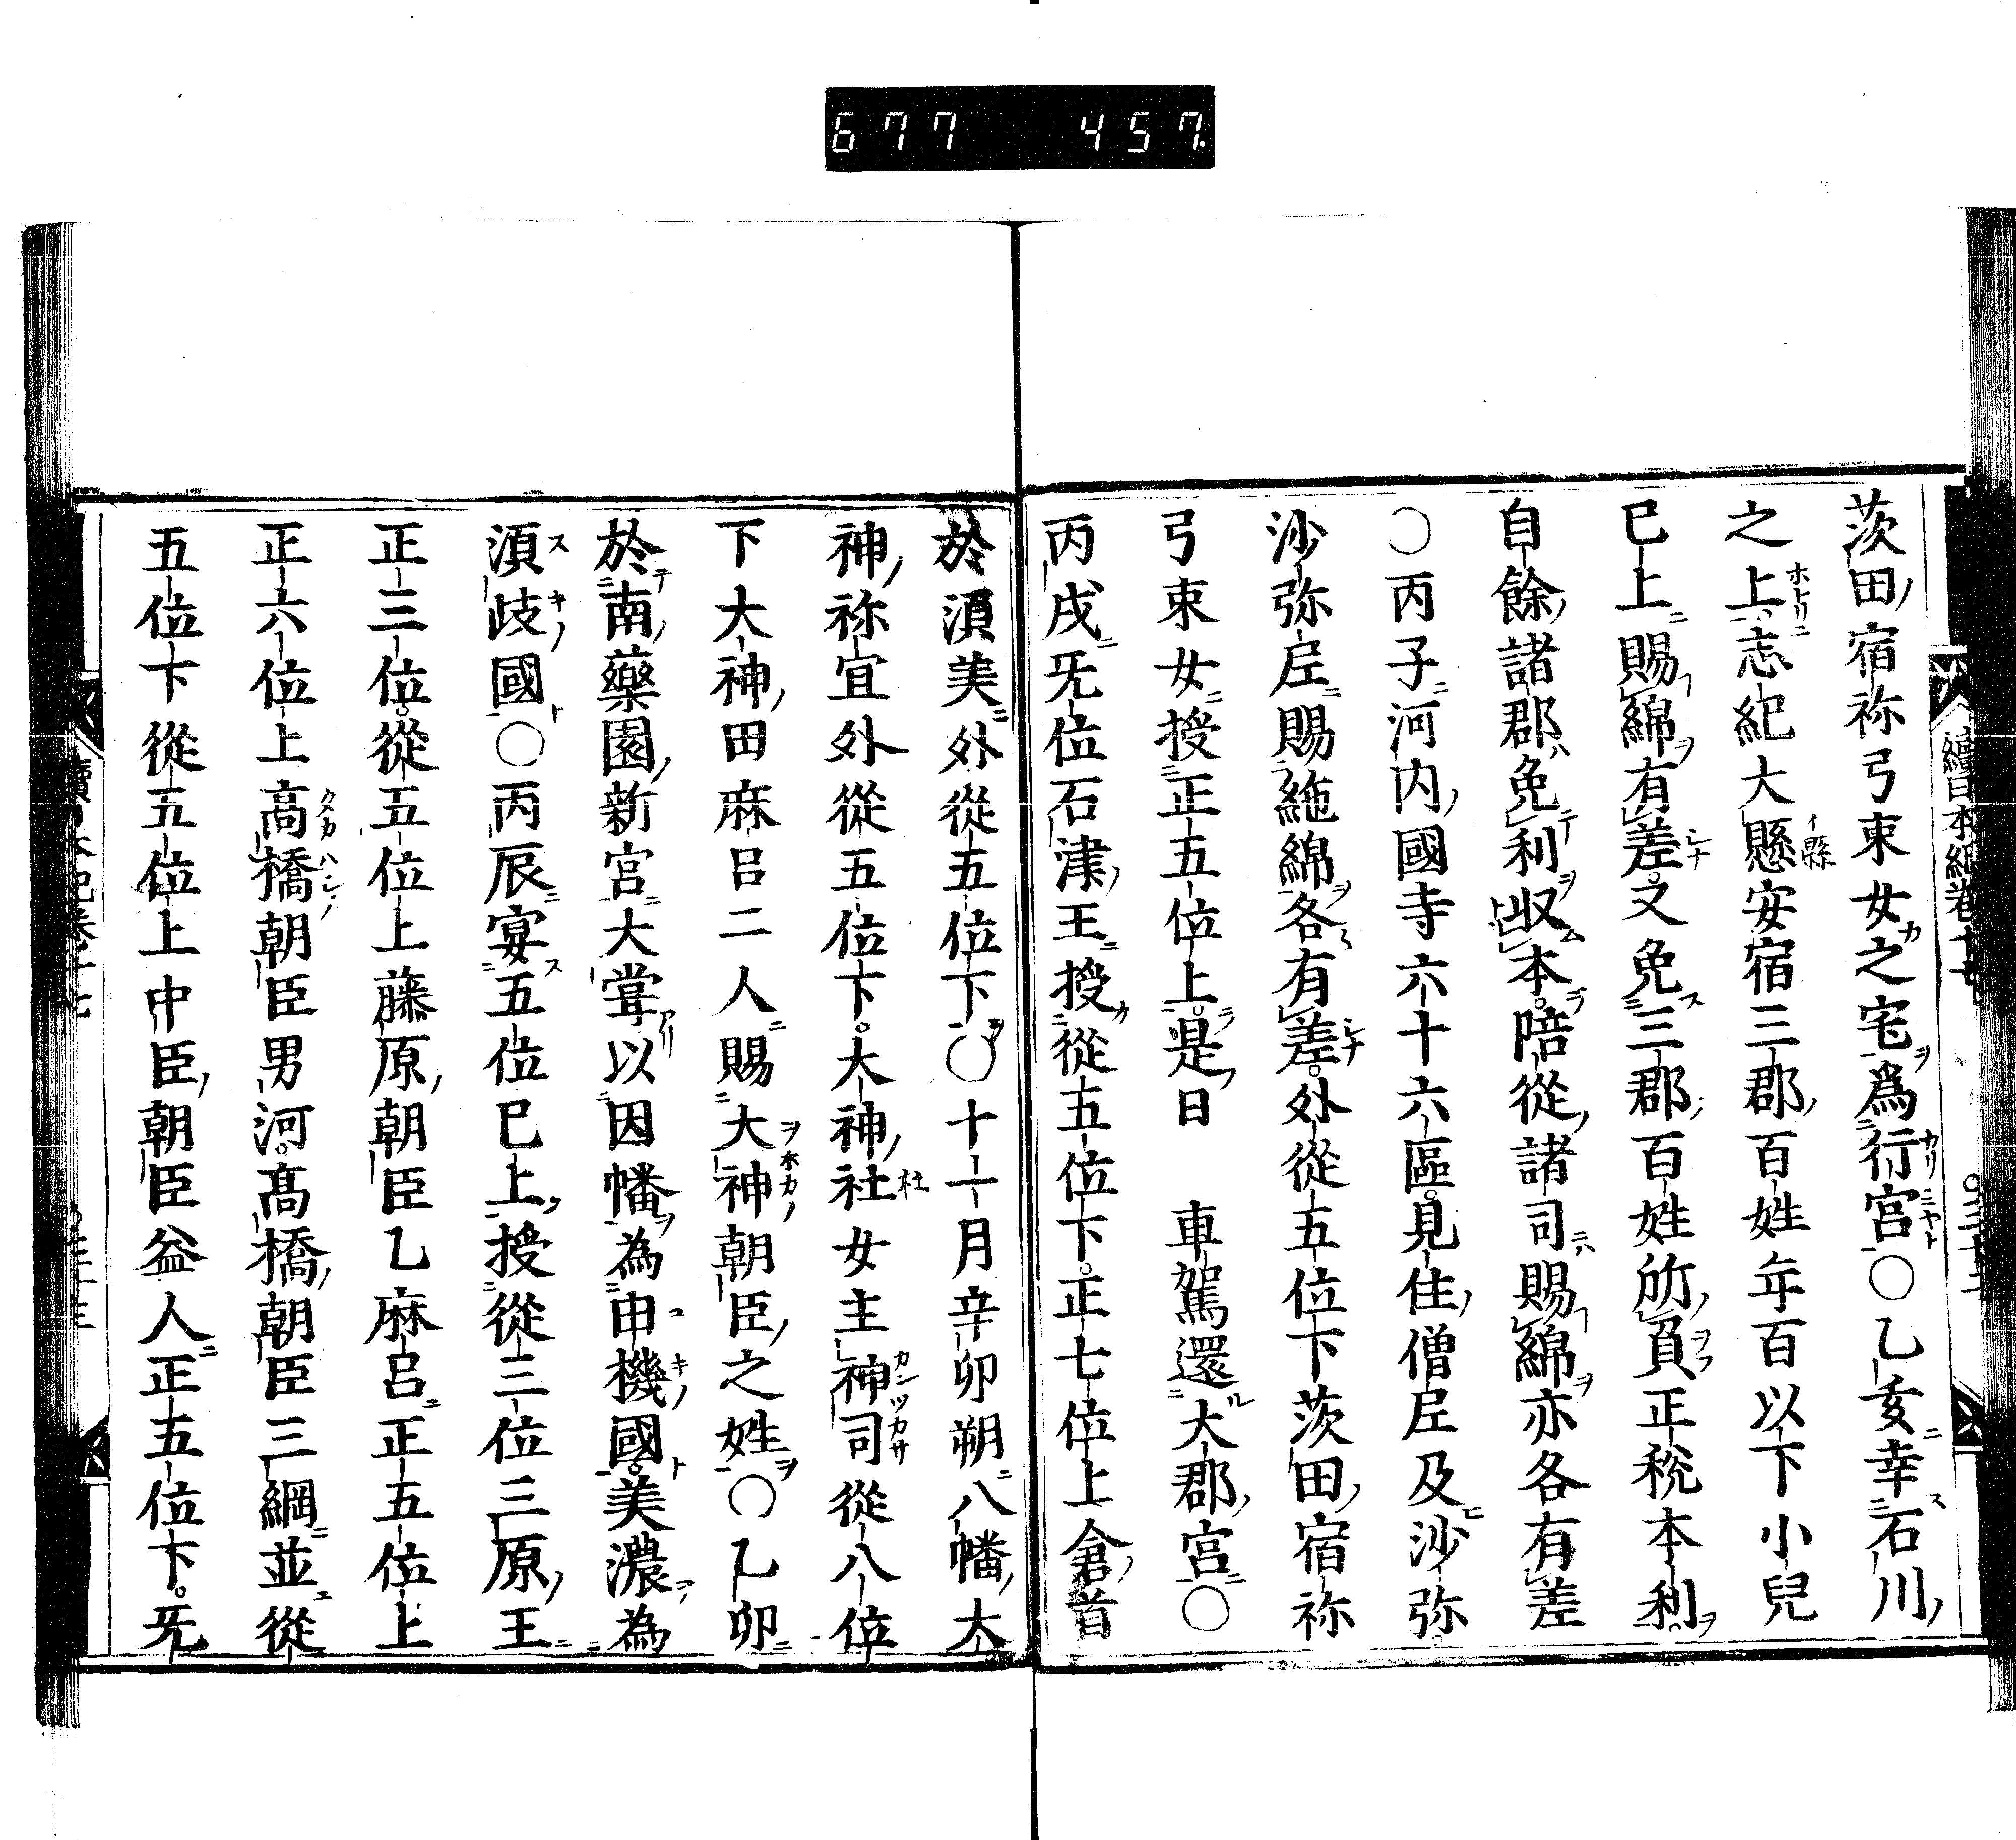 677 457
續日本紀卷十七
茨田宿祢弓束女之宅爲行宮〇乙亥幸石川
之上志紀大懸安宿三郡百姓年百以下小兒
已上賜綿有差又免三郡百姓所負正税本利
自餘諸郡免利收本陪從諸司賜綿亦各有差
〇丙子河内國寺六十六區見住僧尼及沙弥
沙弥尼賜絁綿各有差外從五位下茨田宿祢
弓束女授正五位上是日 車駕還大郡宮〇
丙戌无位石津王授從五位下正七位上倉首
於湏美外從五位下〇十一月辛卯朔八幡大
神祢宜外從五位下大神社女主神司從八位
下大神田麻呂二人賜大神朝臣之姓〇乙卯
於南藥園新宮大甞以因幡為由機國美濃為
湏岐國〇丙辰宴五位已上授從三位三原王
正三位從五位上藤原朝臣乙麻呂正五位上
正六位上高橋朝臣男河高橋朝臣三綱並從
五位下從五位上中臣朝臣益人正五位下无